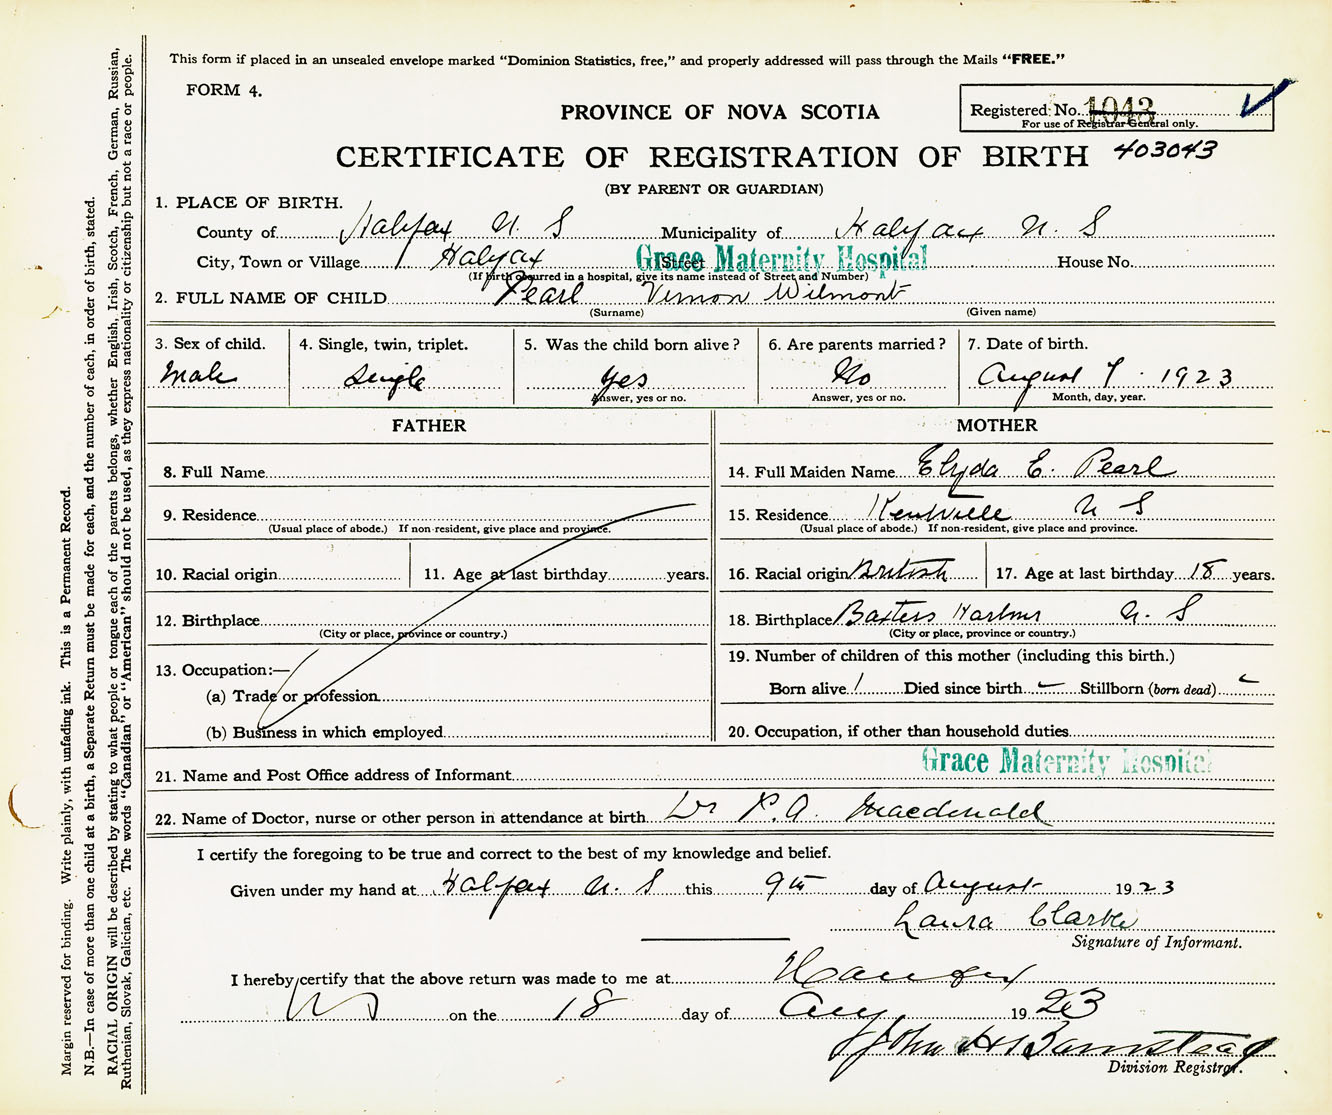 This form if placed in an unsealed envelope marked "Dominion Statistics, free," and properly addressed will pass through the Mails "FREE."
FORM 4.
PROVINCE OF NOVA SCOTIA
Registered No. 1043
For use of Registrar General only.
CERTIFICATE OF REGISTRATION OF BIRTH 403043
(BY PARENT OR GUARDIAN)
1. PLACE OF BIRTH.
County of Halifax N. S Municipality of Halifax N S
City, Town or Village Halifax Street Grace Maternity Hospital House No.
(If birth occurred in a hospital, give its name instead of Street and Number)
2. FULL NAME OF CHILD Pearl Vernon Wilmont
(Surname) (Given name)
3. Sex of child. 4. Single, twin, triplet. 5. Was the child born alive? 6. Are parents married? 7. Date of birth.
Male Single Yes No August 7 1923
Answer, yes or no. Answer, yes or no. Month, day, year.
FATHER MOTHER
8. Full Name 14. Full Maiden Name Elyda E. Pearl
9. Residence 15. Residence Kentville N S
(Usual place of abode.) If non-resident, give place and province. (Usual place of abode.) If non-resident, give place and province.
10. Racial origin 11. Age at last birthday years. 16. Racial origin British 17. Age at last birthday 18 years.
12. Birthplace 18. Birthplace Baxters Harbour N S
(City or place, province or country.) (City or place, province or country.)
13. Occupation:— 19. Number of children of this mother (including this birth.)
(a) Trade or profession Born alive 1 Died since birth – Stillborn (born dead) –
(b) Business in which employed 20. Occupation, if other than household duties
21. Name and Post Office address of Informant Grace Maternity Hospital
22. Name of Doctor, nurse or other person in attendance at birth Dr P.A. Macdonald
I certify the foregoing to be true and correct to the best of my knowledge and belief.
Given under my hand at Halifax N. S this 9th day of August 1923
Laura Clarke
Signature of Informant.
I hereby certify that the above return was made to me at Halifax
NS on the 18 day of Aug 1923
John H Barnstead
Division Registrar.
Margin reserved for binding. Write plainly, with unfading ink. This is a Permanent Record.
N.B.—In case of more than one child at a birth, a Separate Return must be made for each, and the number of each, in order of birth, stated.
RACIAL ORIGIN will be described by stating to what people or tongue each of the parents belongs, whether English, Irish, Scotch, French, German, Russian,
Ruthenian, Slovak, Galician, etc. The words "Canadian" or "American" should not be used, as they express nationality or citizenship but not a race or people.